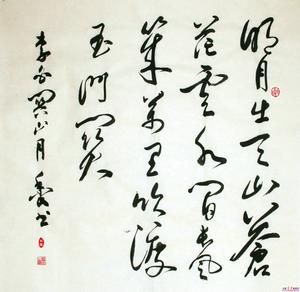 明月出天山蒼
茫雲海間長風
幾萬里吹渡
玉門關
李白關山月 書